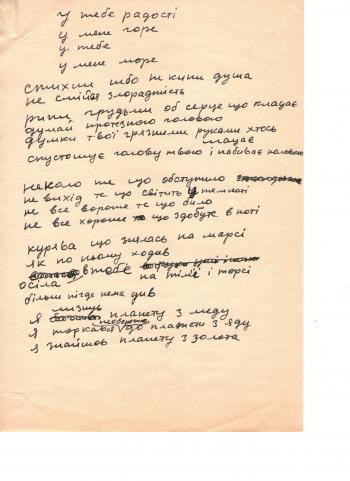 у тебе радості
у мене горе
у тебе
у мене море
стихии або ж кипи душа
не смійся злорадність
рипи грудьми об серце що клацає
думай протезною головою
думки твої грязними руками хтось
мацає
спустошує голову твою і набиває половою
некало те що обступило
не вихід те що світить у темноті
не все вороже те що було
не все хороше що здобуте в поті
курява що знялась на марсі
як по ньому ходив
осіла в тебе на тілі і торсі
більш нігде нема див
лизнув
я планету з меду
я торкався до планети з яду
я знайшов планету з золота